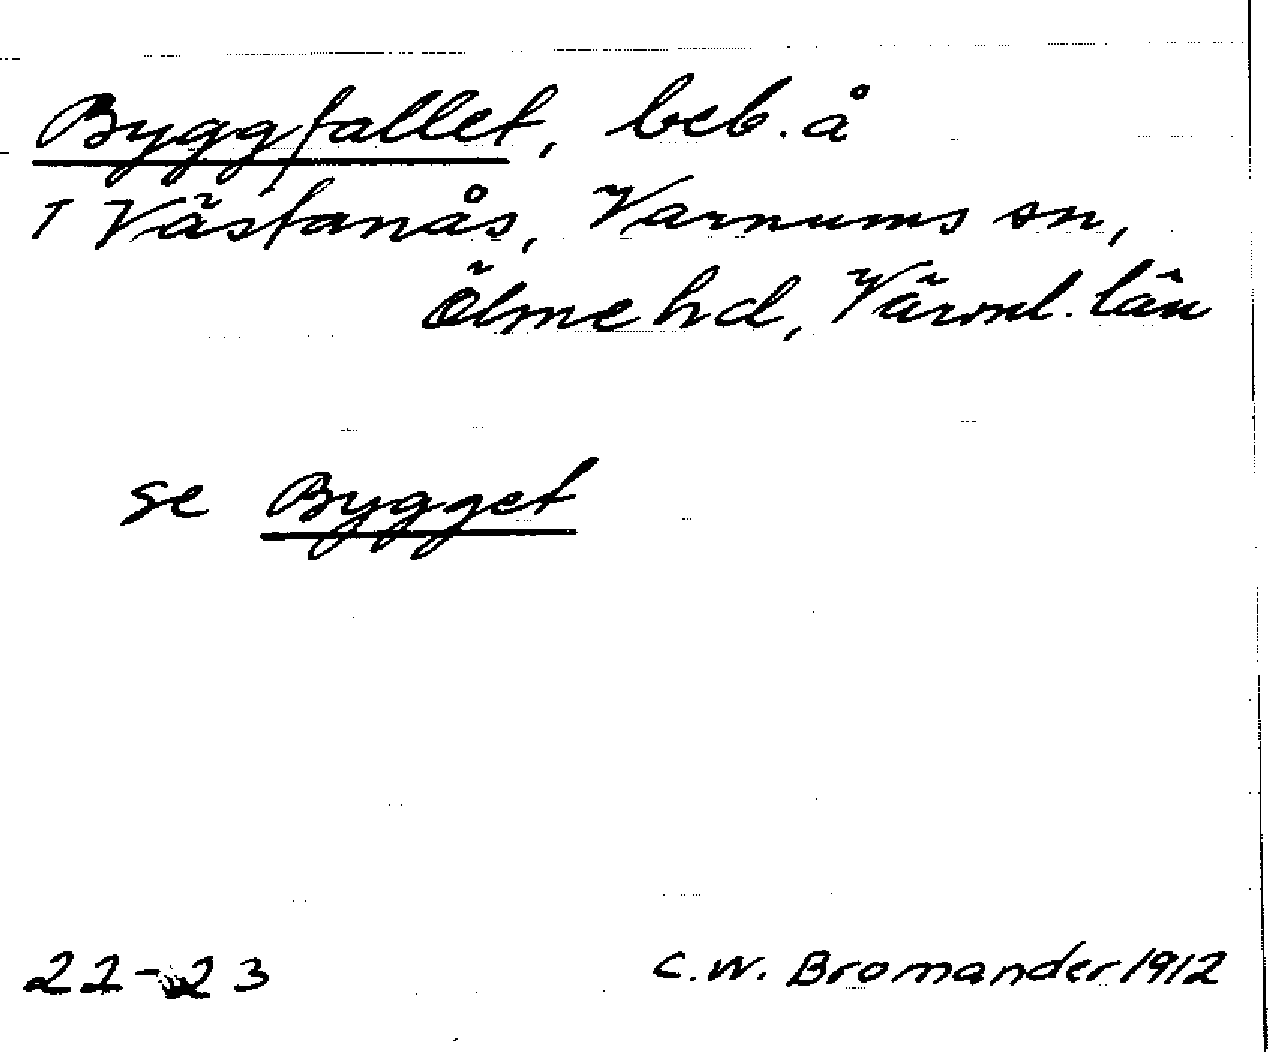 Byggfallet, beb. å
T Västanås, Varnums sn,
Ölme hd, Värml. län
se Bygget
22-23
C.W. Bromander 1912